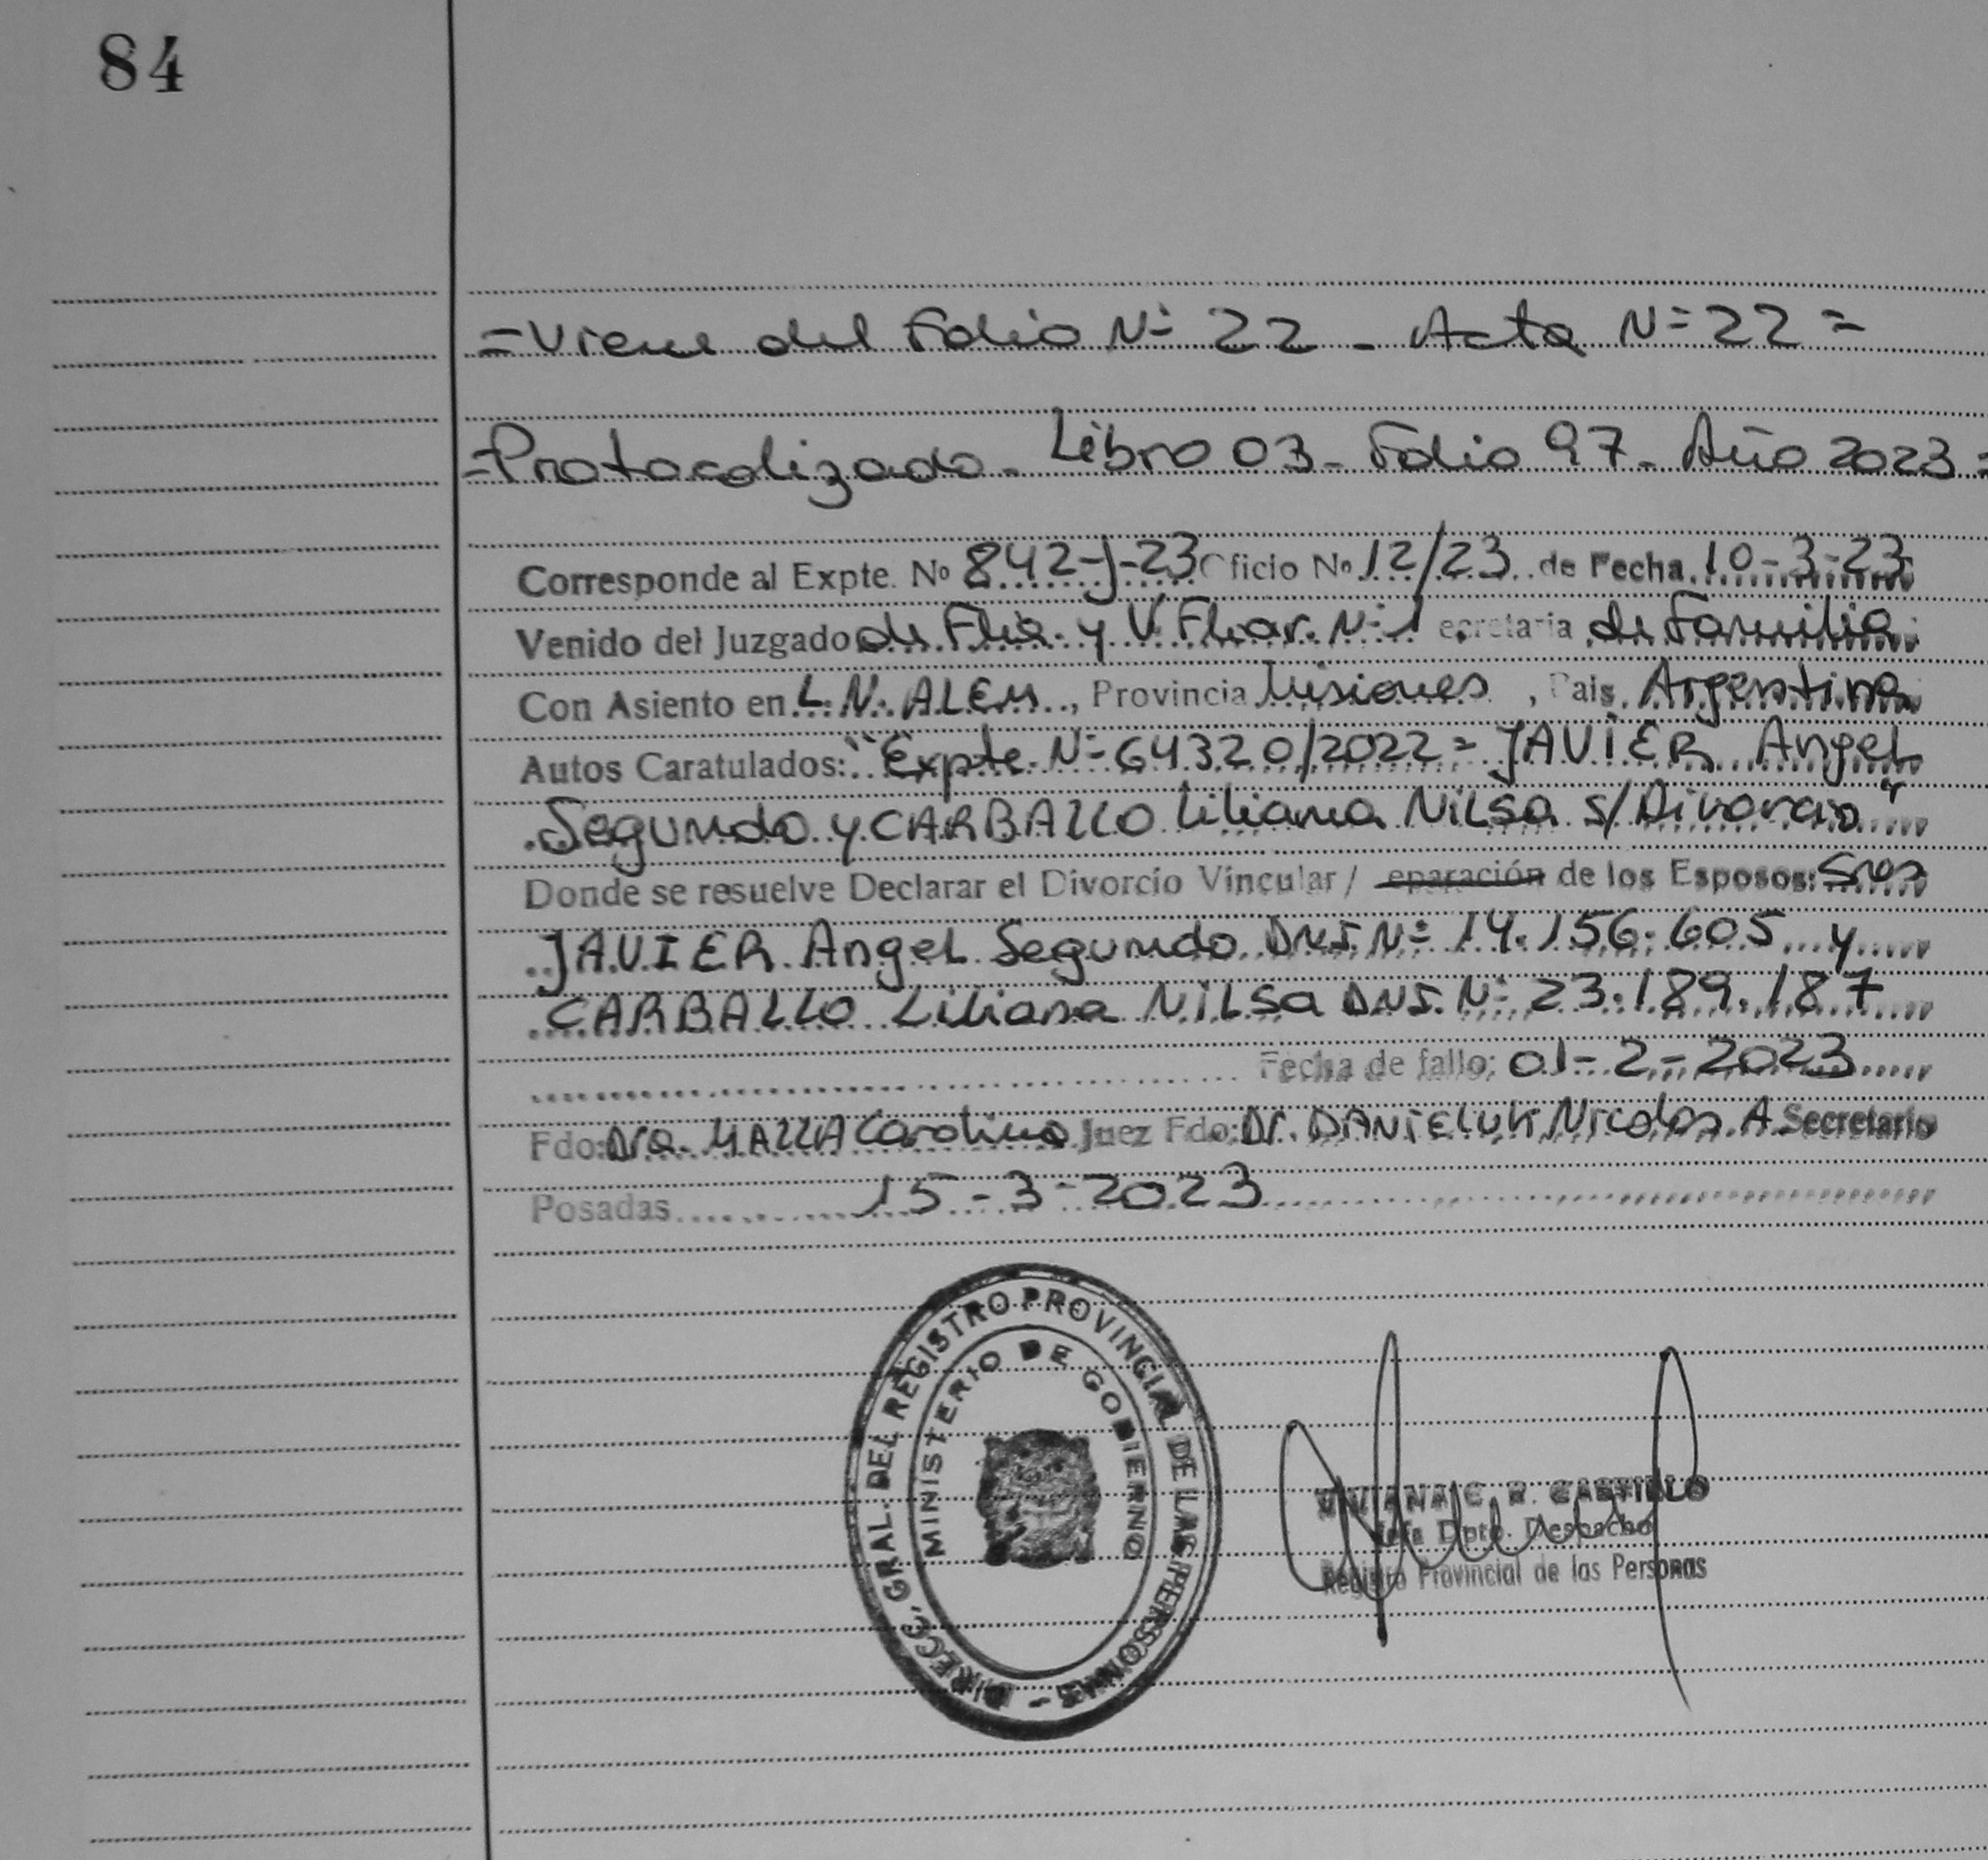 84
=Viene del Folio Nº 22 - Acta Nº 22=
=Protocolizado - Libro 03 - Folio 97 - Año 2023=
Corresponde al Expte. Nº 842-J-23 Oficio Nº 12/23 de Fecha 10-3-23
Venido del Juzgado de Flia. y V. Fliar. Nº 1 ecretaria de Familia
Con Asiento en L. N. ALEM, Provincia Misiones, Pais Argentina
Autos Caratulados: "Expte. Nº 64320/2022= JAVIER Angel
Segundo y CARBALLO Liliana Nilsa s/ Divorcio"
Donde se resuelve Declarar el Divorcio Vincular / eparación de los Esposos: Sres
JAVIER Angel Segundo DNI Nº 14.156.605 y
CARBALLO Liliana Nilsa DNI. Nº 23.189.187
Fecha de fallo: 01-2-2023
Fdo: Dra. Carolina Juez Fdo: Dr. DANIELUK Nicolas A. Secretario
Posadas 15-3-2023
DIRECC. GRAL. DEL REGISTRO PROVINCIAL DE LAS PERSONAS -
MINISTERIO DE GOBIERNO
VIVIANA C. R. CASTILLO
Jefa Dpto. Despacho
Registro Provincial de las Personas